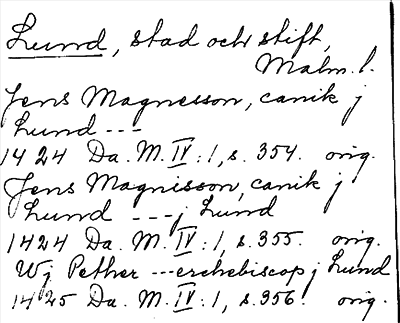 Lund, stad och stift,
Malm. l.
Jens Magnesson, canik j
Lund ---
1424 Da. M. IV:1, s. 354. orig.
Jens Magnisson, canik j
Lund --- j Lund
1424 Da. M. IV:1, s. 355. orig.
Wj Pether --- erchebiscop j Lund
1425 Da. M. IV:1, s. 356. orig.